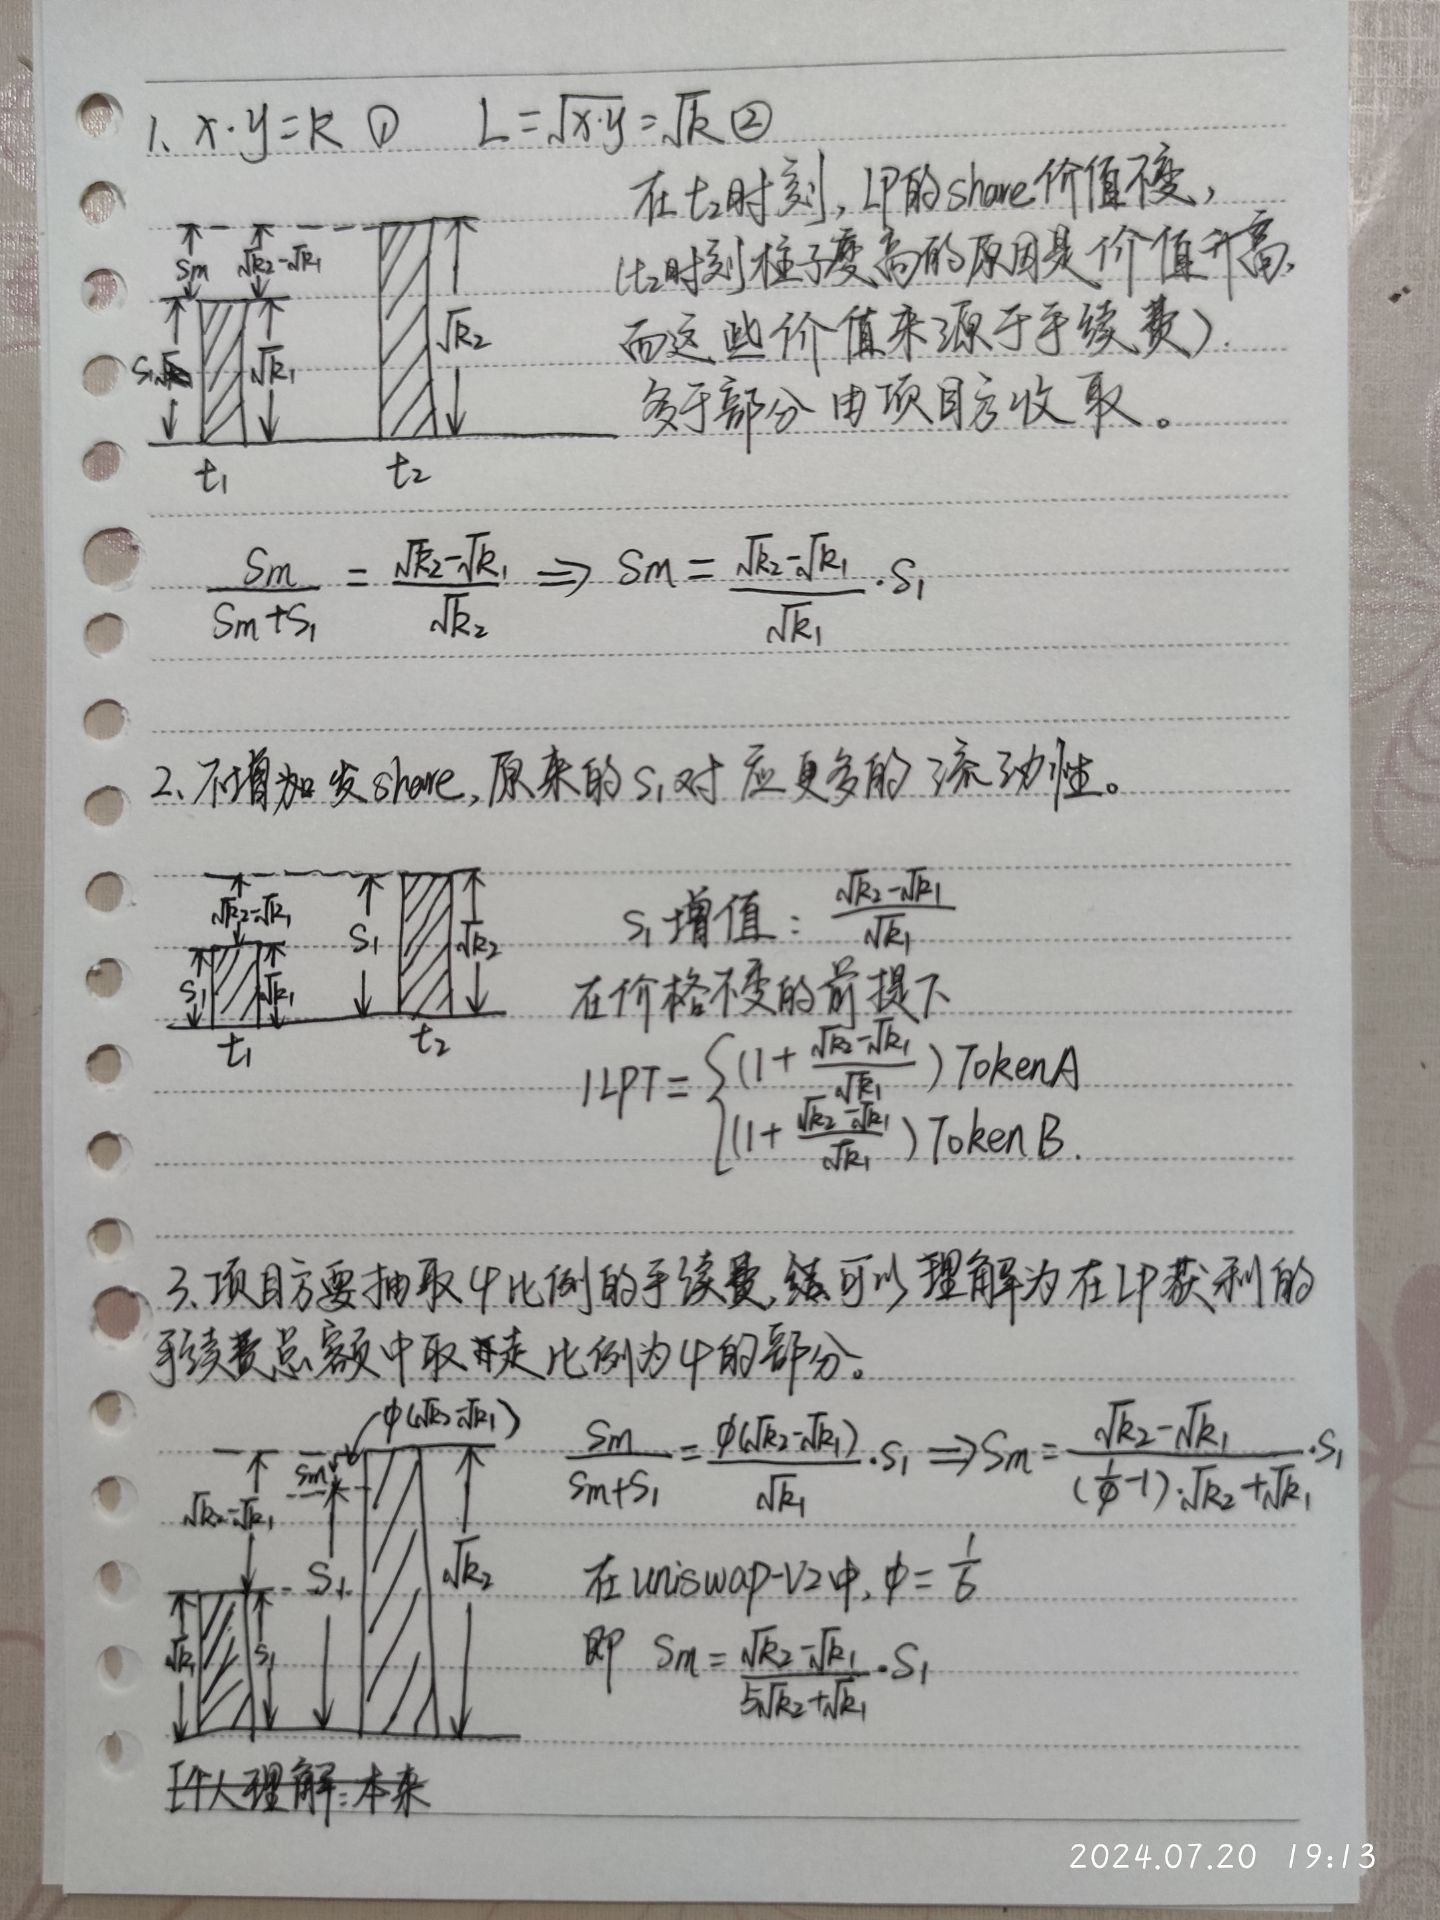 1、x·y=k ① L=√x·y=√k ②
在t₂时刻，LP的share价值不变，
(t₂时刻柱子变高的原因是价值升高，
而这些价值来源于手续费）.
多于部分由项目方收取。
Sm √k₂-√k₁
S₁ √k₁ √k₂
t₁ t₂
Sm/(Sm+S₁) = (√k₂-√k₁)/√k₂ ⇒ Sm = (√k₂-√k₁)/√k₁ ·S₁
2、不增加发share，原来的S₁对应更多的流动性。
√k₂-√k₁ S₁ √k₂
S₁ √k₁
t₁ t₂
S₁增值：(√k₂-√k₁)/√k₁
在价格不变的前提下
1LPT= { (1+(√k₂-√k₁)/√k₁) TokenA
(1+(√k₂-√k₁)/√k₁) Token B.
3、项目方要抽取φ比例的手续费，可以理解为在LP获利的
手续费总额中取走比例为φ的部分。
φ(√k₂-√k₁)
Sm
√k₂-√k₁ S₁ √k₂
√k₁ S₁
Sm/(Sm+S₁) = φ(√k₂-√k₁)/√k₁ ·S₁ ⇒ Sm = (√k₂-√k₁)/((1/φ-1)·√k₂+√k₁) ·S₁
在uniswap-V2中，φ=1/6
即 Sm = (√k₂-√k₁)/(5√k₂+√k₁) ·S₁
个人理解：本来
2024.07.20 19:13